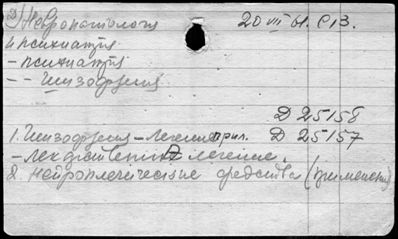 2) Невропатология 20 VII 61. С 13.
и психиатрия
- психиатрия
- - Шизофрения
Д 25158
1. Шизофрения - лечение прил. Д 25157
- лекарственное лечение.
8. Нейроплегические средства (применение)